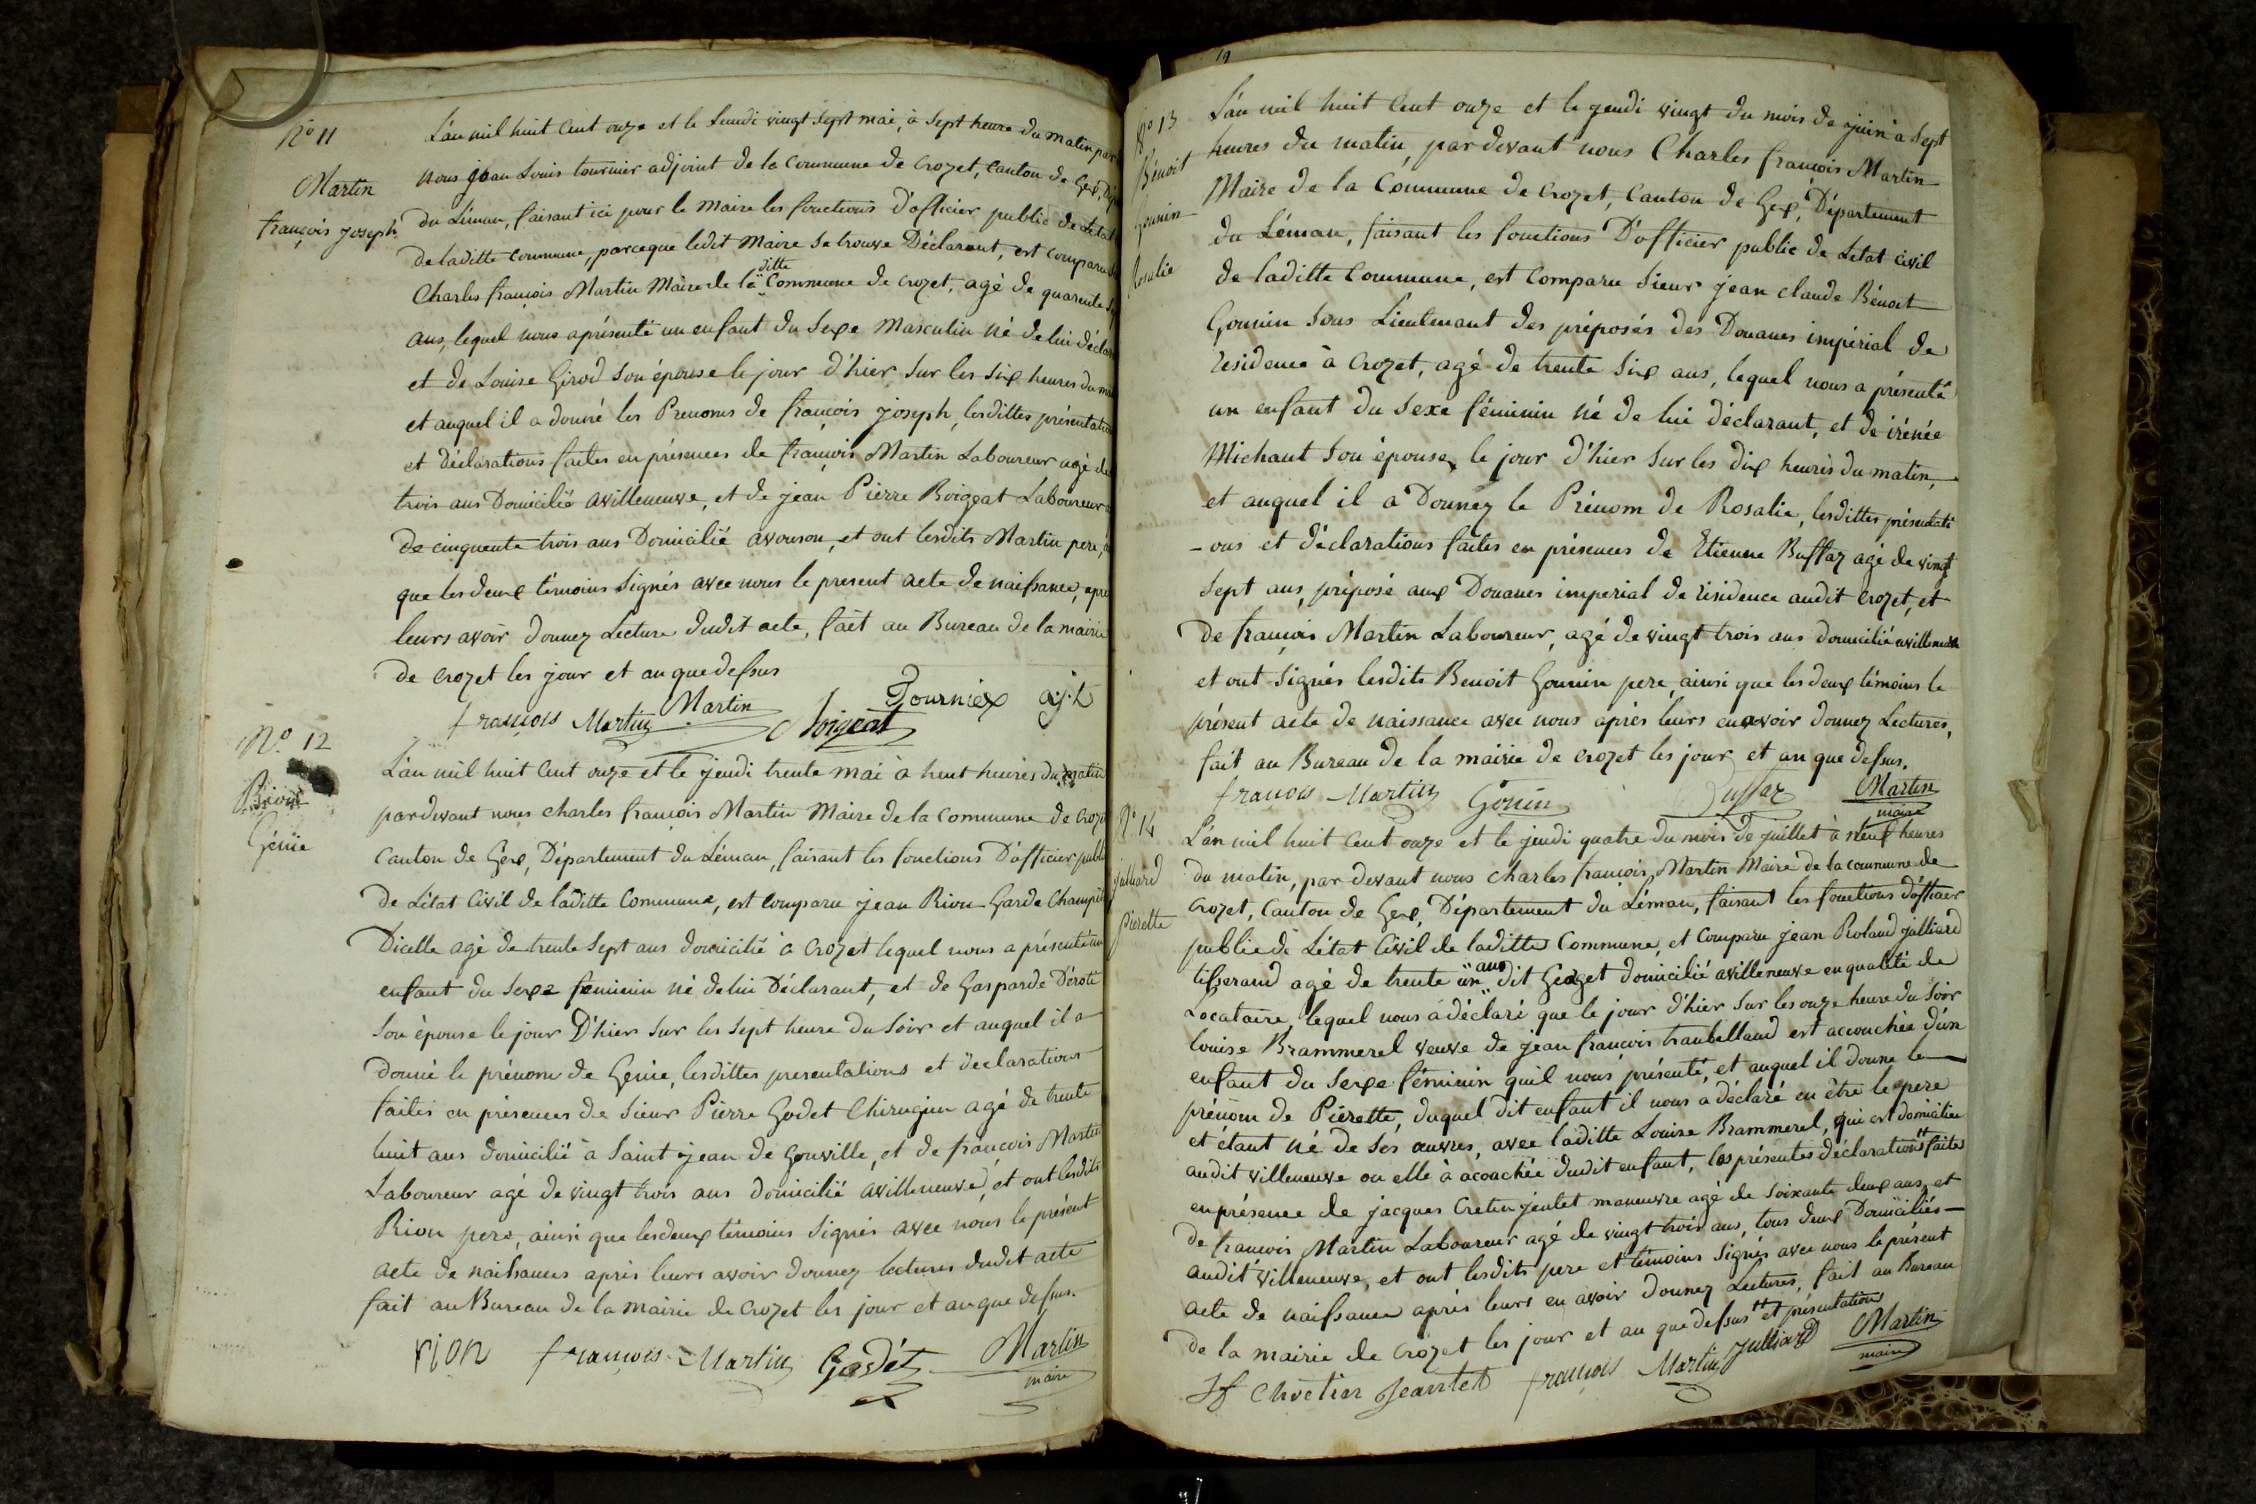 N.o 11
Martin
françois joseph
L'an mil huit Cent onze et le Lundi vingt sept mai, à sept heure du matin par
nous jean Louis tournier adjoint de la Commune de Crozet, Canton de Gex,
du Léman, faisant ici pour le Maire les fonctions d'officier public de Létat
de laditte Commune, parceque ledit Maire se trouve Déclarant, est comparu
Charles françois Martin Maire de la ditte Commune de Crozet, agé de quarente
ans, lequel nous aprésenté un enfant du Sexe Masculin né de lui décla
et de Louise Girod Son épouse le jour d'hier sur les six heures du
et auquel il a donné les Prenoms de françois joseph, lesdittes présentation
et déclarations faites en présences de françois Martin Laboureur agé de
trois ans Domicilié avilleneuve, et de jean Pierre Boigeat Laboureur
de cinquente trois ans Domicilié avouson, et ont lesdits Martin pere,
que les deux témoins Signés avec nous le present acte de naissance, apre
leurs avoir donnez Lecture dudit acte, fait au Bureau de la mairie
de Crozet les jour et an que dessus
françois Martin Martin Boigeat Tournier ajt
N.o 12
Rion
Génie
L'an mil huit Cent onze et le jeudi trente mai à huit heures du matin
pardevant nous charles françois Martin Maire de la Commune de Croz
Canton de Gex, Département du Léman, faisant les fonctions D'officier publi
de Létat Civil de laditte Commune, est comparu jean Rion Garde Champ
Dicelle agé de trente Sept ans domicilié à Crozet lequel nous a présenté un
enfant du Sexe feminin né de lui Déclarant, et de Gasparde Dérote
Son épouse le jour D'hier Sur les Sept heure du Soir et auquel il a
donné le prénom de Génie, lesdittes presentations et déclarations
faites en présences de Sieur Pierre Godet Chirugien agé de trente
huit ans domicilié à Saint jean de Gonville, et de françois Martin
Laboureur agé de vingt trois ans domicilié avilleneuve, et ont lesdits
Rion pere, ainsi que les deux témoins Signés avec nous le présent
acte de naissances après leurs avoir donnez lectures dudit acte
fait au Bureau de la mairie de Crozet les jour et an que dessus.
rion françois Martin Godét Martin
maire
19
N.o 13
Bénoit
Gounin
Rosalie
L'an mil huit Cent onze et le jeudi vingt du mois de juin à Sept
heures du matin, par devant nous Charles françois Martin
Maire de la Commune de Crozet, Canton de Gex, Département
du Léman, faisant les fonctions D'officier public de Létat Civil
de laditte Commune, est Comparu Sieur jean claude Bénoit
Gounin Sous Lieutenant des préposés des Douanes impérial de
residence à Crozet, agé de trente Six ans, lequel nous a présenté
un enfant du Sexe féminin né de lui déclarant, et de irénée
Michaut Son épouse, le jour d'hier Sur les dix heures du matin,
et auquel il a Donnez le Prénom de Rosalie, lesdittes présentati
-ons et déclarations faites en présences de Etienne Buffaz agé de vingt
Sept ans, préposé aux Douanes imperial de résidence audit Crozet, et
de françois Martin Laboureur, agé de vingt trois ans domicilié avilleneuve
et ont Signés lesdits Benoit Gounin pere, ainsi que les deux témoins le
présent acte de naissance avec nous après leurs en avoir donnez Lectures,
fait au Bureau de la mairie de Crozet les jour et an que dessus.
françois Martin Gonin Buffaz Martin
maire
N.o 14
julliard
Pierette
L'an mil huit Cent onze et le jeudi quatre du mois de juillet à neuf heures
du matin, par devant nous charles françois Martin Maire de la commune de
Crozet, Canton de Gex, Département du Léman, faisant les fonctions d'officier
public de Létat Civil de laditte Commune, et Comparu jean Roland julliard
tisserand agé de trente un ans dit Geoget domicilié avilleneuve en qualité de
Locataire, lequel nous a déclaré que le jour d'hier Sur les onze heure du Soir
louise Brammerel veuve de jean françois traubelland est accouchée d'un
enfant du Sexe féminin quil nous présenté, et auquel il donne le
prénom de Piérette, duquel dit enfant il nous a déclaré en être le pere
et étant né de Ses œuvres, avec laditte Louise Brammerel, qui est domiciliée
audit villeneuve ou elle à acouchée dudit enfant, les présentes déclarations faites
en présence de jacques Cretin jentet maneuvre agé de Soixante deux ans et
de françois Martin Laboureur agé de vingt trois ans, tous deux Domiciliés
audit villeneuve, et ont lesdits pere et témoins Signés avec nous le présent
acte de naissance après leurs en avoir donnez Lectures, fait au Bureau
de la mairie de Crozet les jour et an que dessus et présentations
Chretien Jeantet françois Martin Julliard Martin
maire